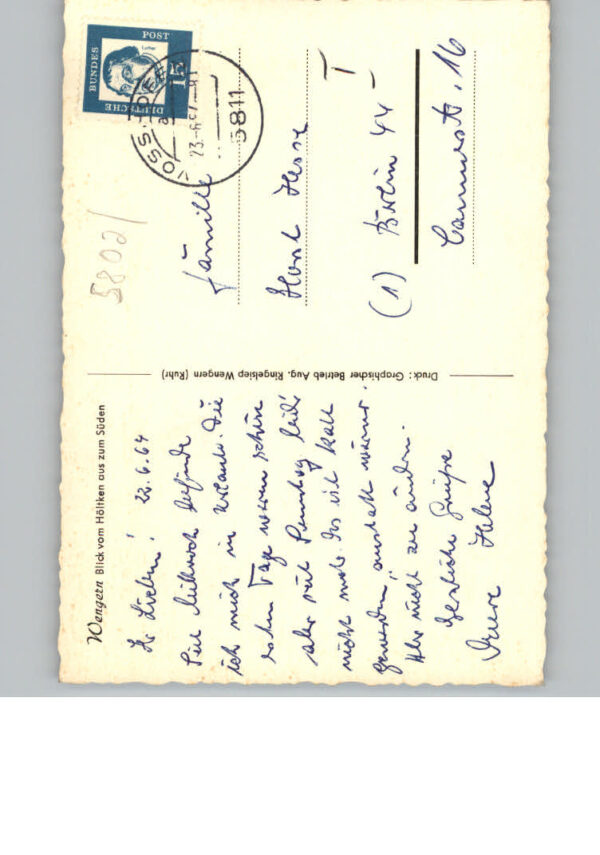 Wengern Blick vom Höltken aus zum Süden
Ihr Lieben! 22.6.64
Seit Mittwoch befinde
ich mich in Urlaub. Die
ersten Tage waren schön
aber seit Sonntag leider
nicht mehr. Es ist kalt
geworden, anstatt warm.
Aber nicht zu ändern.
Herzliche Grüße
Eure Helene
Druck: Graphischer Betrieb Aug. Ringelsiep Wengern (Ruhr)
DEUTSCHE
BUNDES
POST
Luther
15
23.-6.64
5811
5802/
Familie
Horst Hesse
(1) Berlin 44
16